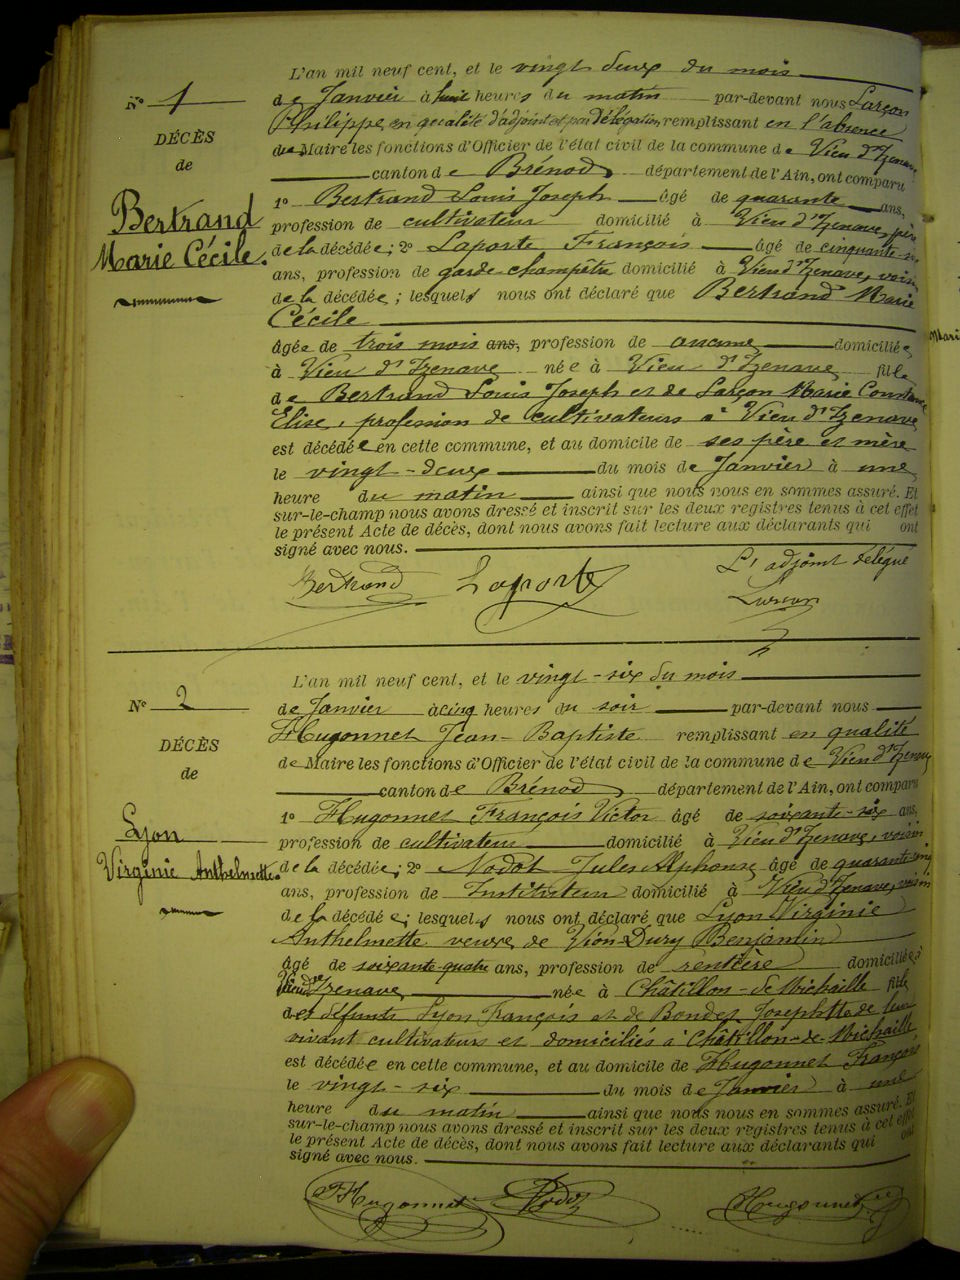 N° 1
DÉCÈS
de
Bertrand
Marie Cécile.
L'an mil neuf cent, et le vingt deux du mois
de Janvier à huit heures du matin par-devant nous Larçon
Philippe, en qualité d'adjoint et par délégation remplissant en l'absence
du Maire les fonctions d'Officier de l'état civil de la commune de Vieu d'Izenave
canton de Brénod département de l'Ain, ont comparu
1° Bertrand Louis Joseph âgé de quarante ans,
profession de cultivateur domicilié à Vieu d'Izenave, père
de la décédée; 2° Laporte François âgé de cinquante-
ans, profession de garde champêtre domicilié à Vieu d'Izenave, voisin
de la décédée; lesquels nous ont déclaré que Bertrand Marie
Cécile
âgée de trois mois ans, profession de aucune domiciliée
à Vieu d'Izenave née à Vieu d'Izenave fille
de Bertrand Louis Joseph et de Larçon Marie Constance
Elise, profession de cultivateurs à Vieu d'Izenave
est décédée en cette commune, et au domicile de ses père et mère
le vingt-deux du mois de Janvier à une
heure du matin ainsi que nous nous en sommes assuré. Et
sur-le-champ nous avons dressé et inscrit sur les deux registres tenus à cet effet
le présent Acte de décès, dont nous avons fait lecture aux déclarants qui ont
signé avec nous.
Bertrand Laporte L'adjoint délégué
Larçon
N° 2
DÉCÈS
de
Lyon
Virginie Anthelmette.
L'an mil neuf cent, et le vingt-six du mois
de Janvier à cinq heures du soir par-devant nous
Hugonnet Jean-Baptiste remplissant en qualité
de Maire les fonctions d'Officier de l'état civil de la commune de Vieu d'Izenave
canton de Brénod département de l'Ain, ont comparu
1° Hugonnet François Victor âgé de soixante-six ans,
profession de cultivateur domicilié à Vieu d'Izenave, voisin
de la décédée; 2° Nodot Jules Alphonse âgé de quarante-cinq
ans, profession de Instituteur domicilié à Vieu d'Izenave, voisin
de la décédée; lesquels nous ont déclaré que Lyon Virginie
Anthelmette veuve de Vion-Dury Benjamin
âgé de soixante-quatre ans, profession de rentière domiciliée à
Vieu d'Izenave née à Châtillon-de-Michaille fille
des défunts Lyon François et de Bondet Josephte de leur
vivant cultivateurs et domiciliés à Châtillon-de-Michaille
est décédée en cette commune, et au domicile de Hugonnet François
le vingt-six du mois de Janvier à une
heure du matin ainsi que nous nous en sommes assuré. Et
sur-le-champ nous avons dressé et inscrit sur les deux registres tenus à cet effet
le présent Acte de décès, dont nous avons fait lecture aux déclarants qui ont
signé avec nous.
F Hugonnet Nodot Hugonnet